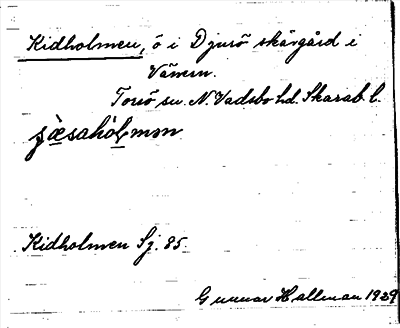 Kidholmen, ö i Djurö skärgård i
Vänern.
Torsö sn. N. Vadsbo hd. Skarab. l.
Kidholmen Sj. 85.
Gunnar Hallman 1929